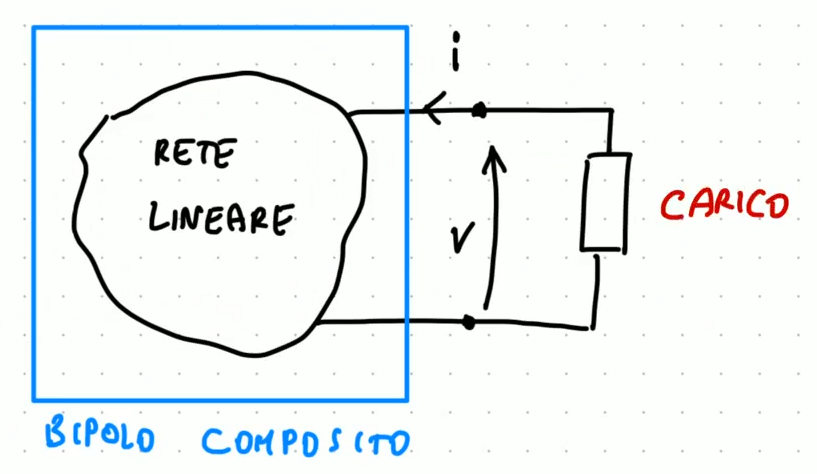 i
RETE
LINEARE
CARICO
V
BIPOLO COMPOSITO